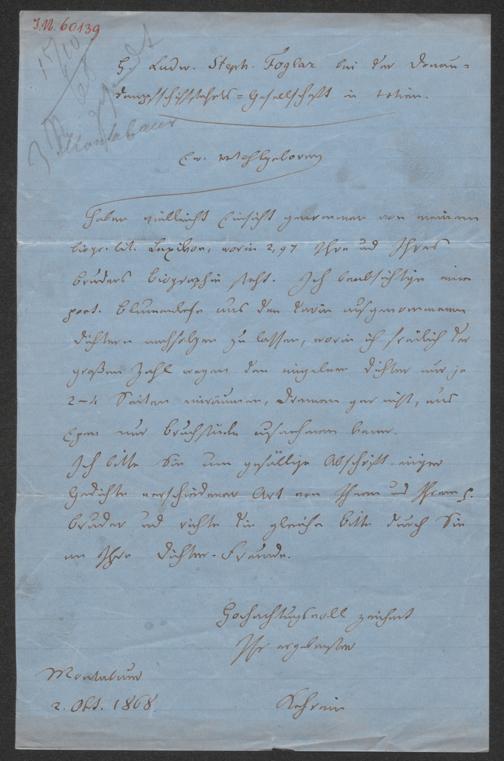 I.N. 60139
15/10
68
Montabaur
H Ludw. Steph. Foglar bei der Donau-
dampfschifffahrts-Gesellschaft in Wien.
Ew. Wohlgeboren
haben vielleicht Einsicht genommen von meinem
biogr. lit. Lexikon, worin 2, 97 Ihre und Ihres
Bruders Biographie steht. Ich beabsichtige eine
poet. Blumenlese aus den darin aufgenommenen
Dichtern nachfolgen zu lassen, worin ich freilich der
großen Zahl wegen den einzelnen Dichter nur je
2-4 Seiten einräumen, Dramen gar nicht, aus
Epen nur Bruchstücke aufnehmen kann.
Ich bitte Sie um gefällige Abschrift einiger
Gedichte verschiedener Art von Ihnen und Ihrem H.
Bruder und richte die gleiche Bitte durch Sie
an Ihre Dichter-Freunde.
Hochachtungsvoll zeichnet
Ihr ergebenster
Montabaur
2. Okt. 1868.
Kehrein